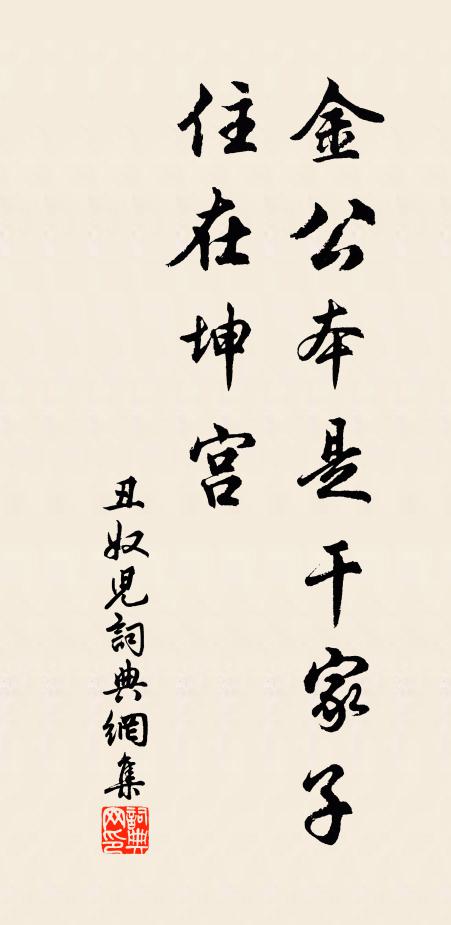 金公本是干家子
住在坤宫
丑奴兒詞典網集
詞典网印